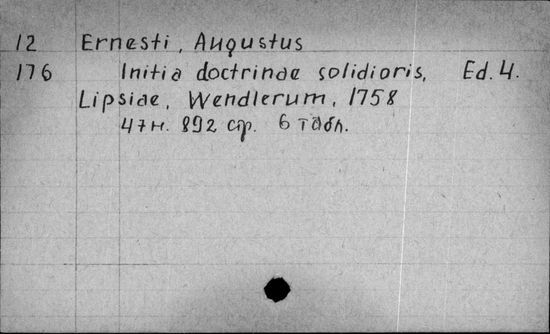 12 Ernesti, Augustus
176 Initia doctrinae solidioris, Ed. 4.
Lipsiae, Wendlerum, 1758
47н. 892 ср. 6 табл.